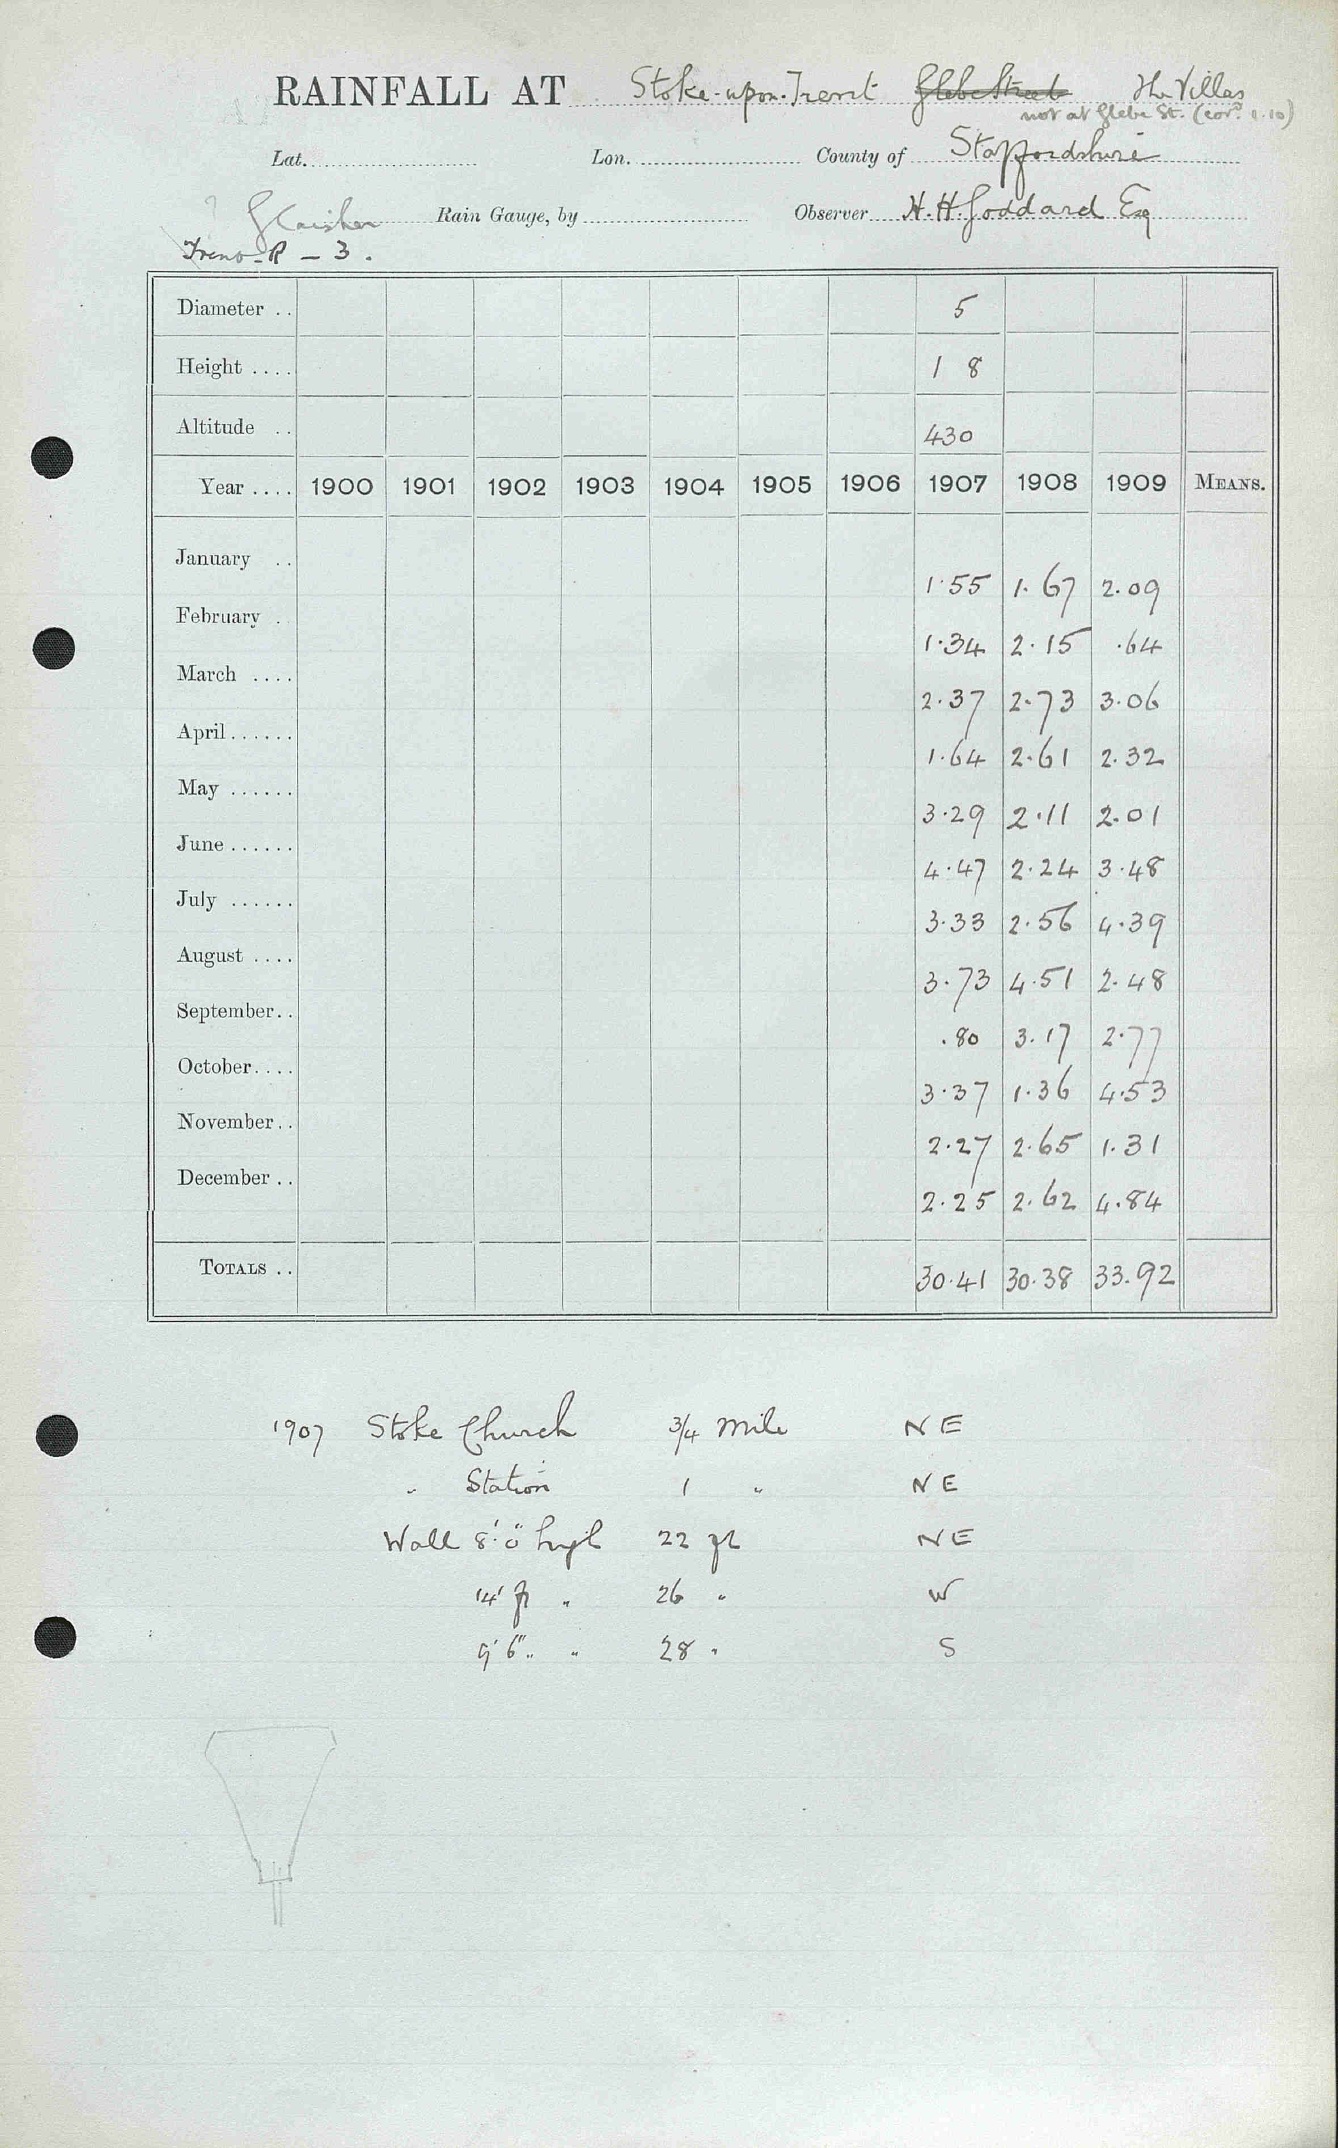 RAINFALL AT Stoke-upon-Trent Glebe Street The Villas
not at Glebe St. (cor. 1.10)
Lat. Lon. County of Staffordshire
? Glaisher Rain Gauge, by Observer H. H. Goddard Esq
R - 3.
Diameter .. 5
Height .... 1 8
Altitude .. 430
Year .... 1900 1901 1902 1903 1904 1905 1906 1907 1908 1909 MEANS.
January .. 1.55 1.67 2.09
February . 1.34 2.15 .64
March .... 2.37 2.73 3.06
April...... 1.64 2.61 2.32
May ...... 3.29 2.11 2.01
June...... 4.47 2.24 3.48
July ...... 3.33 2.56 4.39
August .... 3.73 4.51 2.48
September.. .80 3.17 2.77
October.... 3.37 1.36 4.53
November.. 2.27 2.65 1.31
December.. 2.25 2.62 4.84
TOTALS .. 30.41 30.38 33.92
1907 Stoke Church 3/4 Mile NE
" Station 1 " NE
Wall 8'.0" high 22 ft NE
14' ft " 26 " W
9' 6" " " 28 " S